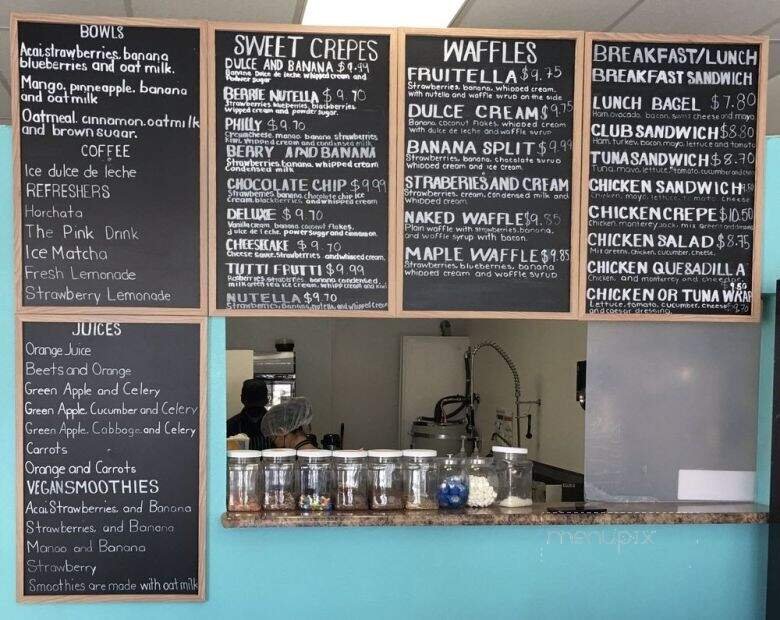 BOWLS
Acai, strawberries, banana
blueberries and oat milk.
Mango, pinneapple, banana
and oatmilk
Oatmeal, cinnamon, oatmilk
and brown sugar.
COFFEE
Ice dulce de leche
REFRESHERS
Horchata
The Pink Drink
Ice Matcha
Fresh Lemonade
Strawberry Lemonade
JUICES
Orange Juice
Beets and Orange
Green Apple and Celery
Green Apple, Cucumber and Celery
Green Apple, Cabbage and Celery
Carrots
Orange and Carrots
VEGAN SMOOTHIES
Acai, Strawberries, and Banana
Strawberries, and Banana
Mango and Banana
Strawberry
Smoothies are made with oat milk
SWEET CREPES
DULCE AND BANANA $9.99
Banana, Dulce de leche, whipped cream and
Powder sugar
BERRIE NUTELLA $9.70
Strawberries, blueberries, blackberries
whipped cream and powder sugar.
PHILLY $9.70
Creamcheese, mango, banana, strawberries
Kiwi, whipped cream and condensed milk
BERRY AND BANANA
Strawberries, banana, whipped cream
Condensed milk
CHOCOLATE CHIP $9.99
Strawberries, banana, chocolate chip, ice
cream, blackberries, and whipped cream
DELUXE $9.70
Vanilla cream, banana, coconut flakes,
dulce de leche, power suggr and cinnamon.
CHEESECAKE $9.70
Cheese sauce, Strawberries, and whipped cream.
TUTTI FRUTTI $9.99
Rasberries, strawberries, banana, condensed
milk, ice cream, whipp cream and kiwi
NUTELLA $9.70
Strawberries, banana, nutella, and whipped cream
WAFFLES
FRUITELLA $9.75
Strawberries, banana, whipped cream,
with nutella and waffle syrup on the side
DULCE CREAM $9.75
Banana, coconut flakes, whipped cream
with dulce de leche and waffle syrup
BANANA SPLIT $9.99
Strawberries, banana, chocolate syrup
whipped cream and ice cream.
STRABERIES AND CREAM
Strawberries, cream, condensed milk and
whipped cream.
NAKED WAFFLE $9.85
Plain waffle with strawberries, banana,
and waffle syrup with bacon.
MAPLE WAFFLE $9.85
Strawberries, blueberries, banana
whipped cream and waffle syrup
BREAKFAST/LUNCH
BREAKFAST SANDWICH
LUNCH BAGEL $7.80
Ham, avocado, bacon, swiss cheese and mayo
CLUB SANDWICH $8.80
Ham, turkey, bacon, mayo, lettuce and tomato
TUNA SANDWICH $8.70
Tuna, mayo, lettuce, tomato, cucumber and
CHICKEN SANDWICH
Chicken, mayo, lettuce, cheese
CHICKEN CREPE $10.50
Chicken, monterey jack, mix green
CHICKEN SALAD $8.75
Mix greens, chicken, cucumber, cheese.
CHICKEN QUESADILLA
Chicken, and monterey and cheddar
9.50
CHICKEN OR TUNA WRAP
Lettuce, tomato, cucumber, cheese
and caesar dressing.
menupix